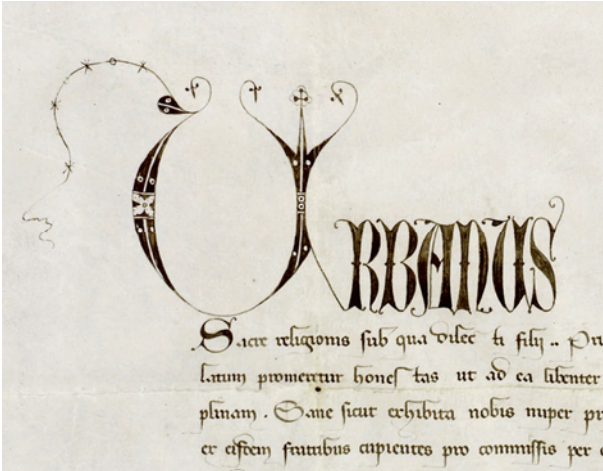 URBANUS
Sacre religionis sub qua dilec ti filij .. Pri
latum promeretur hones tas ut ad ea libenter
plinam . Sane sicut exhibita nobis nuper pr
er eisdem fratribus cupientes pro commissis per